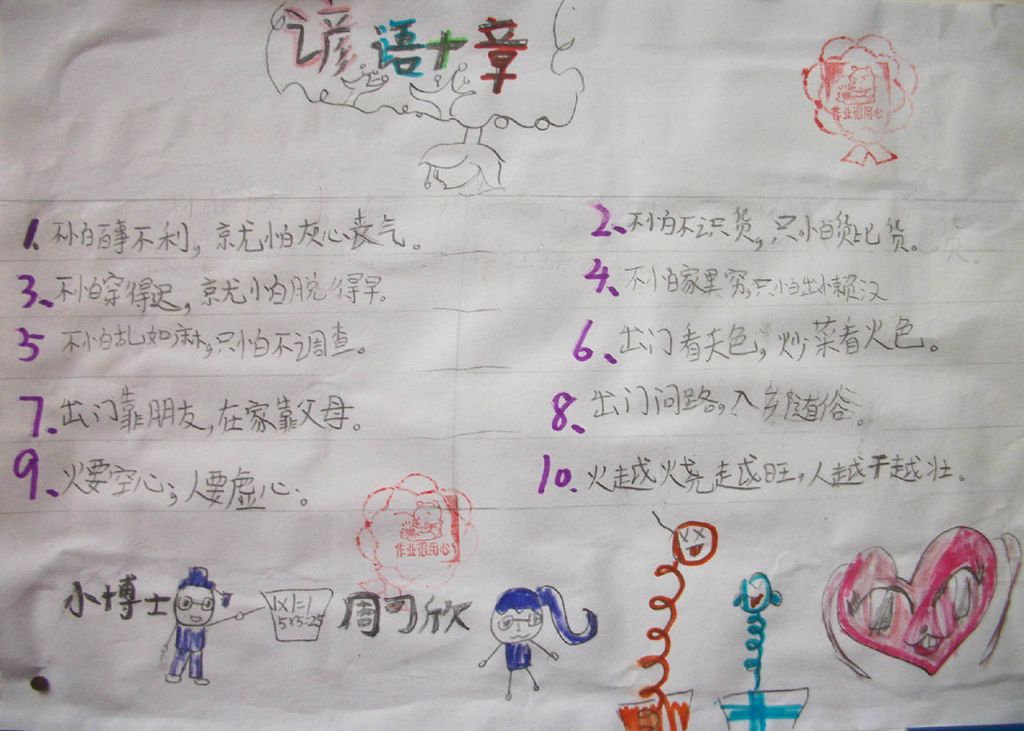 谚语十章
作业很用心
1、不怕百事不利，京尤怕灰心丧气。
2、不怕不识货，只怕货比货。
3、不怕穿得迟，京尤怕脱得早。
4、不怕家里穷，只怕出懒汉
5 不怕乱如麻，只怕不调查。
6、出门看天色，炒菜看火色。
7、出门靠朋友，在家靠父母。
8、出门问路，入乡随俗。
9、火要空心；人要虚心。
10、火越烧越旺，人越干越壮。
作业很用心
小博士
1×1=1
5×5=25
周可欣